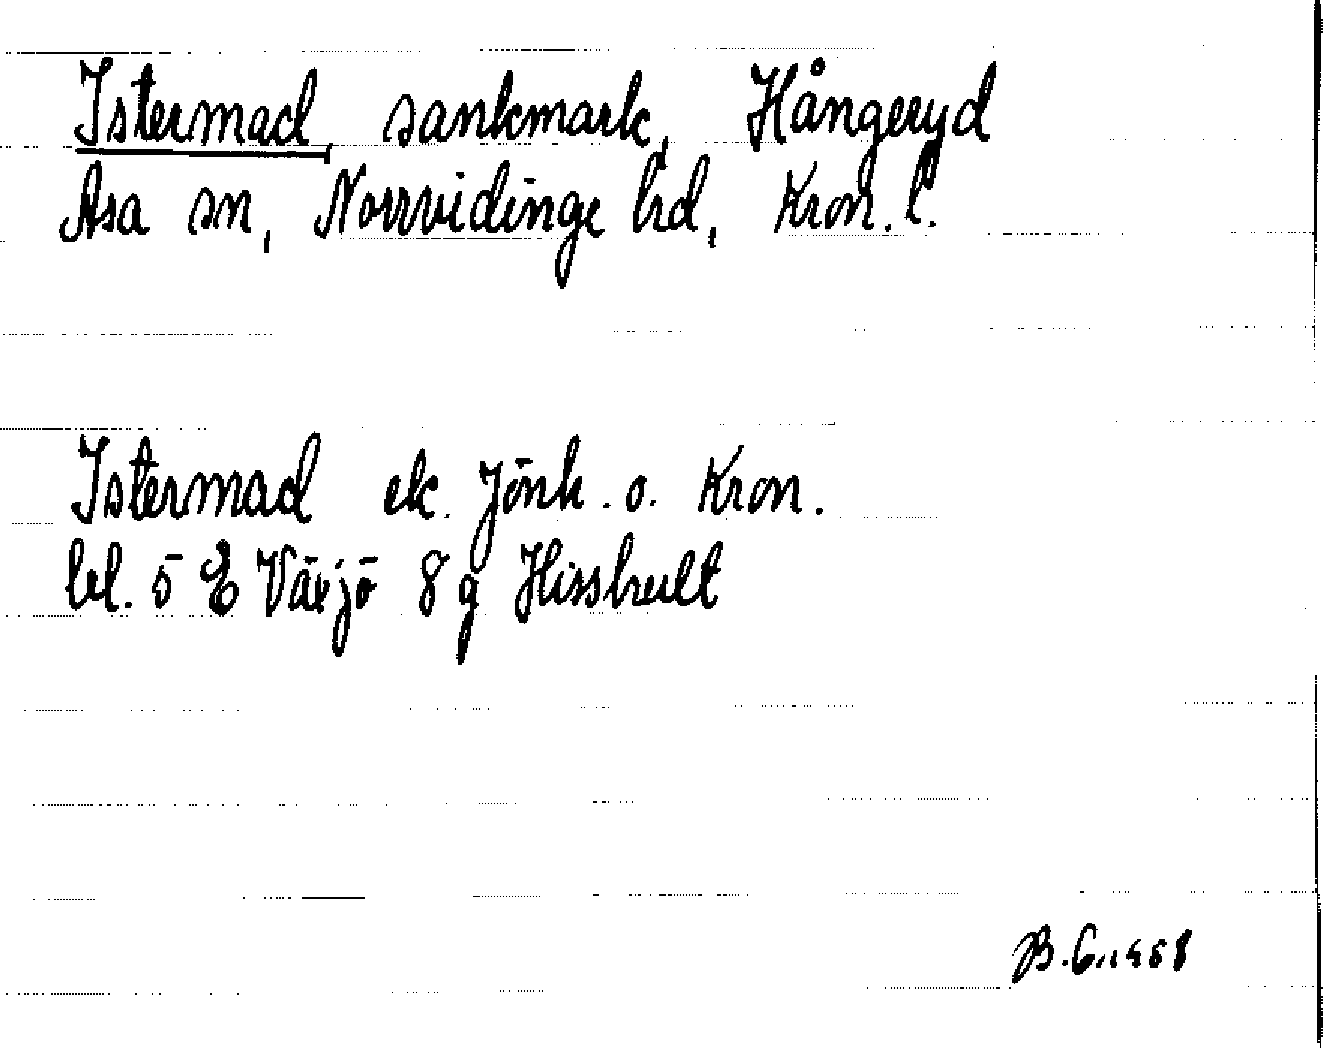 Istermad, sankmark, Hångeryd
Asa sn, Norrvidinge hd, Kron. l.
Istermad ek. Jönk. o. Kron.
bl. 5 E Växjö 8 g Hisshult
B.G. 1958